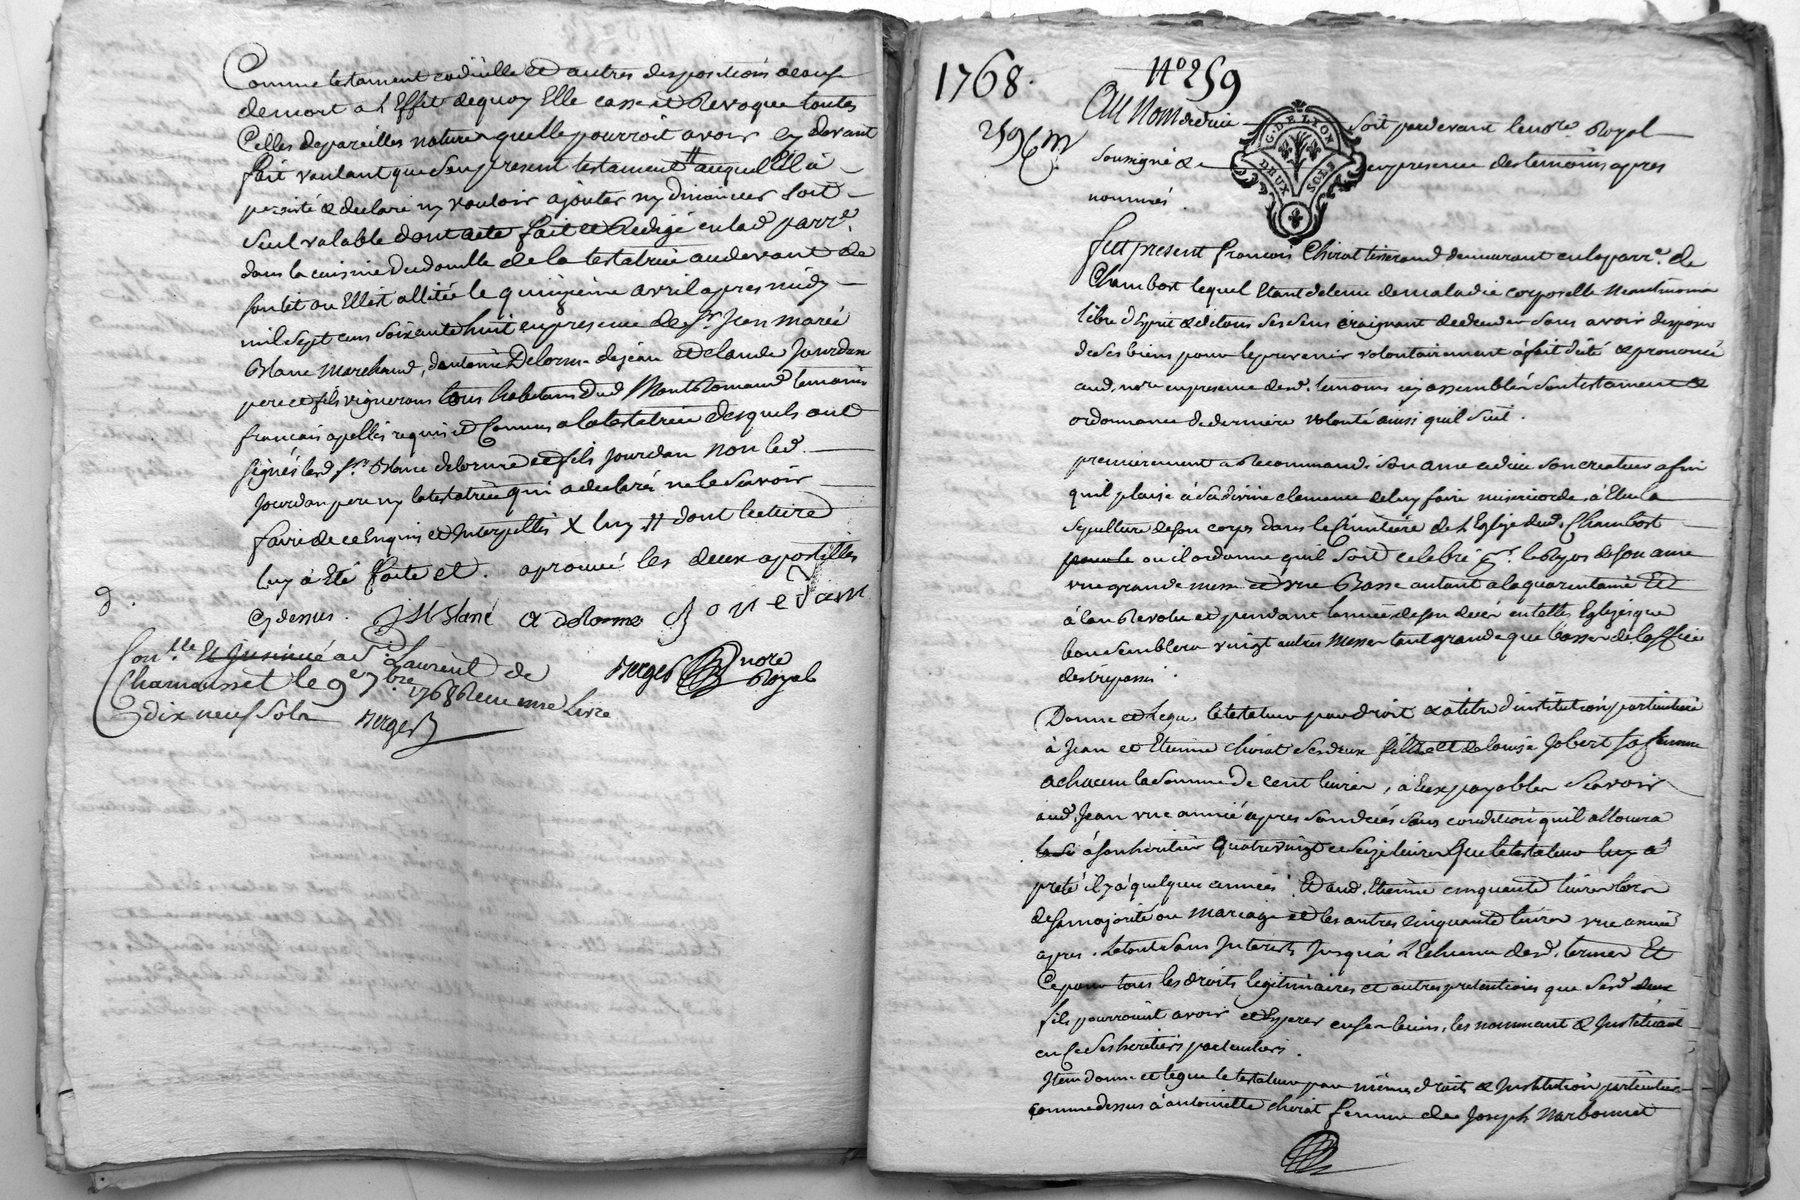 Comme testament codicille et autres dispositions a cause
de mort a l'Effet de quoy Elle casse et Revoque toutes
Celles de pareilles nature quelle pourroit avoir cy devant
fait voulant que son present testament auquel Ell à
persisté & declaré ny vouloir ajouter ny diminuer soit
seul valable dont acte fait et Redigé en lad parr.e
dans la cuisine du domille de la testatrice au devant de
son lit ou Ell est allitée le quinzieme avril apres midy
mil sept cens soixante huit en presence de Sr. Jean marie
Blanc marchand, d'antoine Delorme dejean et claude Jourdan
pere et fils vignerons tous habitans dud Montromand temoins
francais apellés requis et Connus a la testatrice desquels ont
signés led sr. Blanc delorme et fils jourdan non led.
Jourdan pere ny la testatrice qui a declaré ne le scavoir
faire de ce Enquis et Interpellés X luy # dont lecture
luy à Eté faite et . aprouvé les deux apostilles
cy dessus. J M Blanc A delorme
Con.lle Et Insinué a St. Laurent de
Chamousset le 9e 7bre 1768 Recu onze Livre
dix neuf sols
Berger
Berger nore Royal
1768.
N° 259
Au Nom de dieu soit pardevant le no.re Royal
G. DE LYON
DEUX SOLS
soussigné & en presence des temoins apres
nommés.
fut present francois Chirat tisserand demeurant en la parr.e de
Chambost lequel Etant detenu de maladie corporelle neantmoins
libre d'Esprit & de tous ses sens craignant de deceder sans avoir disposé
de ses biens pour le prevenir volontairement à fait dicté & prononcé
aud. no.re en presence desd. temoins icy assemblés son testament &
ordonnance de derniere volonté ainsi quil suit.
premierement a Recommandé son ame a dieu son createur afin
quil plaise à sa divine clemence de luy faire misericorde, à Elu la
sepulture de son corps dans le Cimitiére de l'Eglise dud. Chambost
ou il ordonne quil soit celebré pr. le Repos de son ame
une grande messe et une Basse autant a la quarentaine Et
à l'an Revolu et pendant l'année de son decés en telles Eglises que
bon semblera vingt autres Messes tant grandes que basses de l'office
des trépassés.
Donne et Legue le testateur par droit & a titre d'institution particuliere
à Jean et Etienne Chirat ses deux fils et de Louise Jobert sa femme
a chacun la somme de cent livres, à Eux payables scavoir
aud. Jean une année apres son decés sous condition quil allouera
à son heritier quatre vingt et seize livres que le testateur luy à
preté il y à quelques années Et aud. Etienne cinquante livres lors
de sa majorité ou mariage et les autres cinquante livres une année
apres. Le tout sans Interests jusqu'à l'Echeance desd. termes Et
Ce pour tous les droits legitimaires et autres pretentions que sesd. deux
fils pourroint avoir et Esperer en ses biens, les nommant & Instituant
en ce ses heritiers particuliers.
Item donne et legue le testateur par mêmes droits & Institution particuliere
comme dessus à antoinette Chirat femme de Joseph Narbonnet